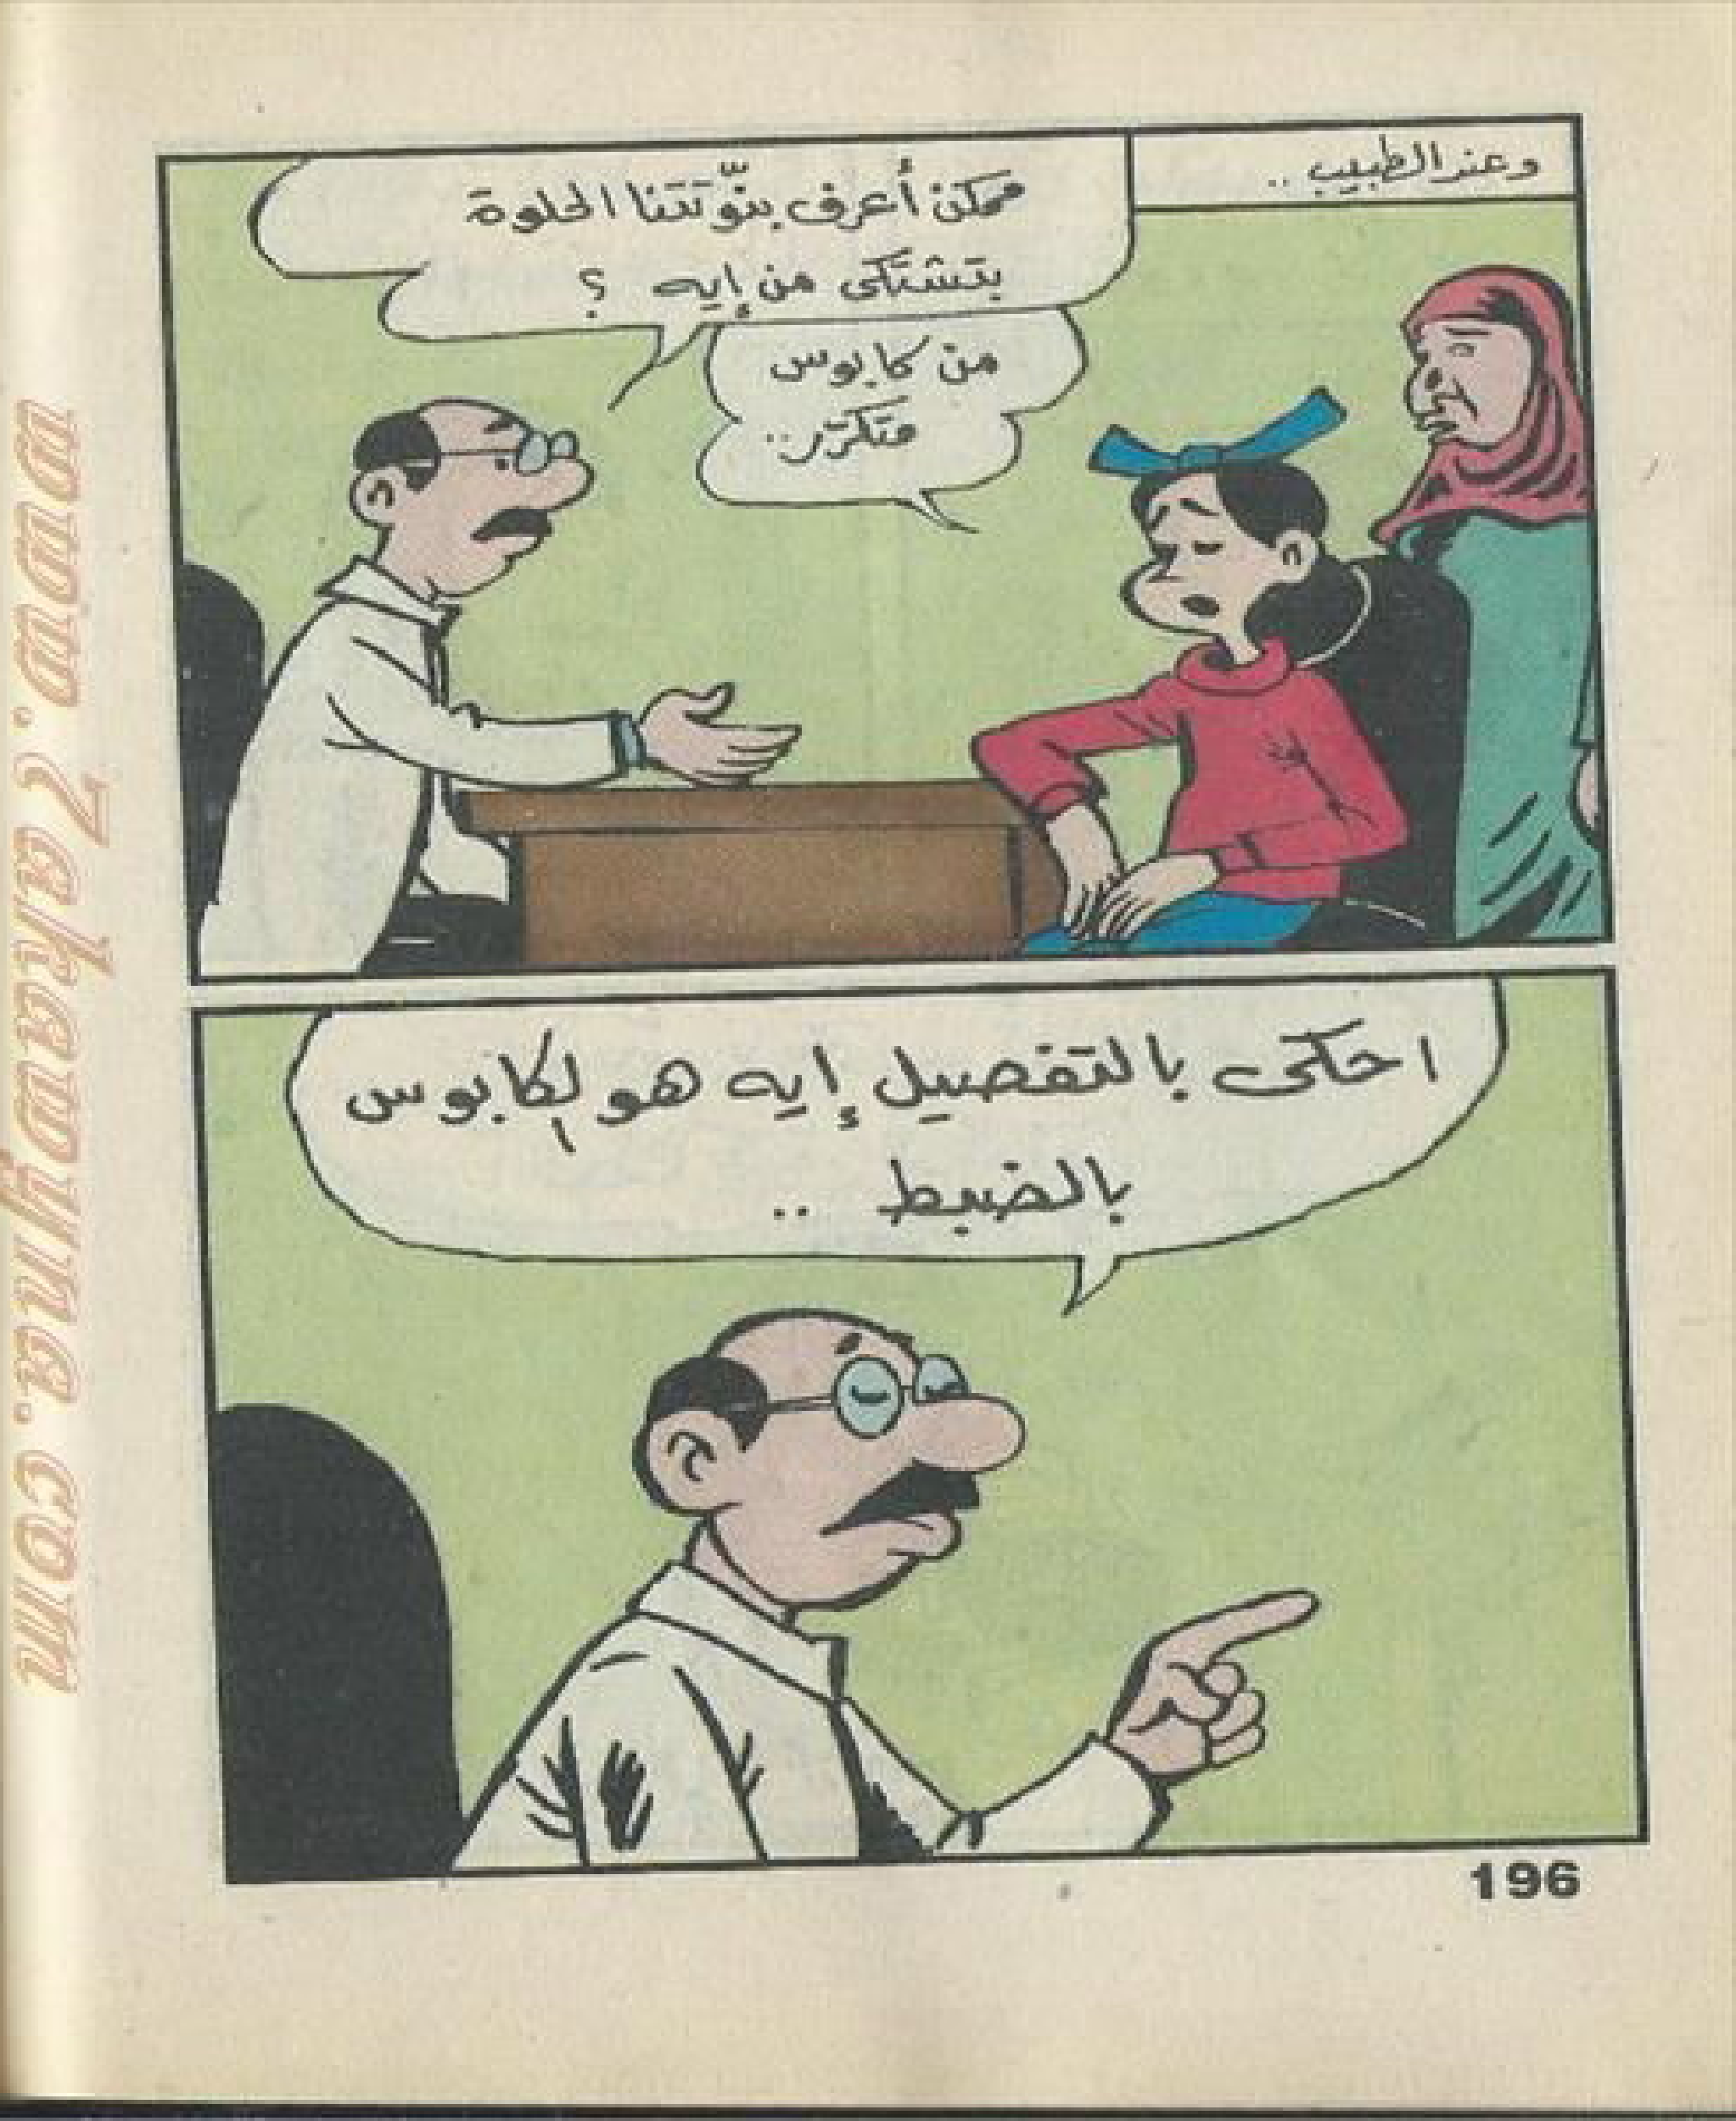 وعند الطبيب ..
ممكن أعرف بنّوتتنا الحلوة
بتشتكى من إيه ؟
من كابوس
متكرّر..
احكى بالتفصيل إيه هو الكابوس
بالضبط ..
196